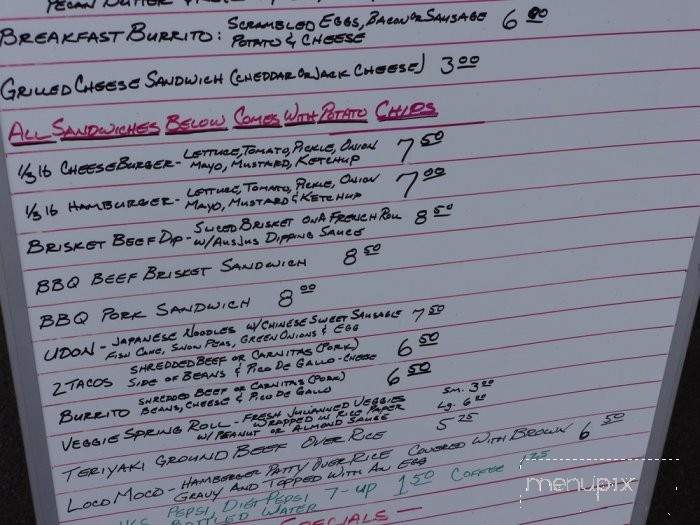 PECAN BUTTER
BREAKFAST BURRITO: SCRAMBLED EGGS, BACON OR SAUSAGE 6 00
POTATO & CHEESE
GRILLED CHEESE SANDWICH (CHEDDAR OR JACK CHEESE) 3 00
ALL SANDWICHES BELOW COMES WITH POTATO CHIPS
1/3 lb CHEESEBURGER - LETTUCE, TOMATO, PICKLE, ONION 7 50
MAYO, MUSTARD, KETCHUP
1/3 lb HAMBURGER - LETTUCE, TOMATO, PICKLE, ONION 7 00
MAYO, MUSTARD & KETCHUP
BRISKET BEEF DIP - SLICED BRISKET ON A FRENCH ROLL 8 50
W/ AUSJUS DIPPING SAUCE
BBQ BEEF BRISKET SANDWICH 8 50
BBQ PORK SANDWICH 8 00
UDON - JAPANESE NOODLES W/ CHINESE SWEET SAUSAGE 7 50
FISH CAKE, SNOW PEAS, GREEN ONIONS & EGG
2 TACOS SHREDDED BEEF OR CARNITAS (PORK) 6 50
SIDE OF BEANS & PICO DE GALLO - CHEESE
BURRITO SHREDDED BEEF OR CARNITAS (PORK) 6 50
BEANS, CHEESE & PICO DE GALLO
VEGGIE SPRING ROLL - FRESH JULIANNED VEGGIES SM. 3 00
WRAPPED IN RICE PAPER LG. 6 00
W/ PEANUT OR ALMOND SAUCE
TERIYAKI GROUND BEEF OVER RICE 5 25
LOCO MOCO - HAMBURGER PATTY OVER RICE COVERED WITH BROWN 6 50
GRAVY AND TOPPED WITH AN EGG
PEPSI, DIET PEPSI 7-UP 1 50 COFFEE
BOTTLED WATER
SPECIALS -
menupix